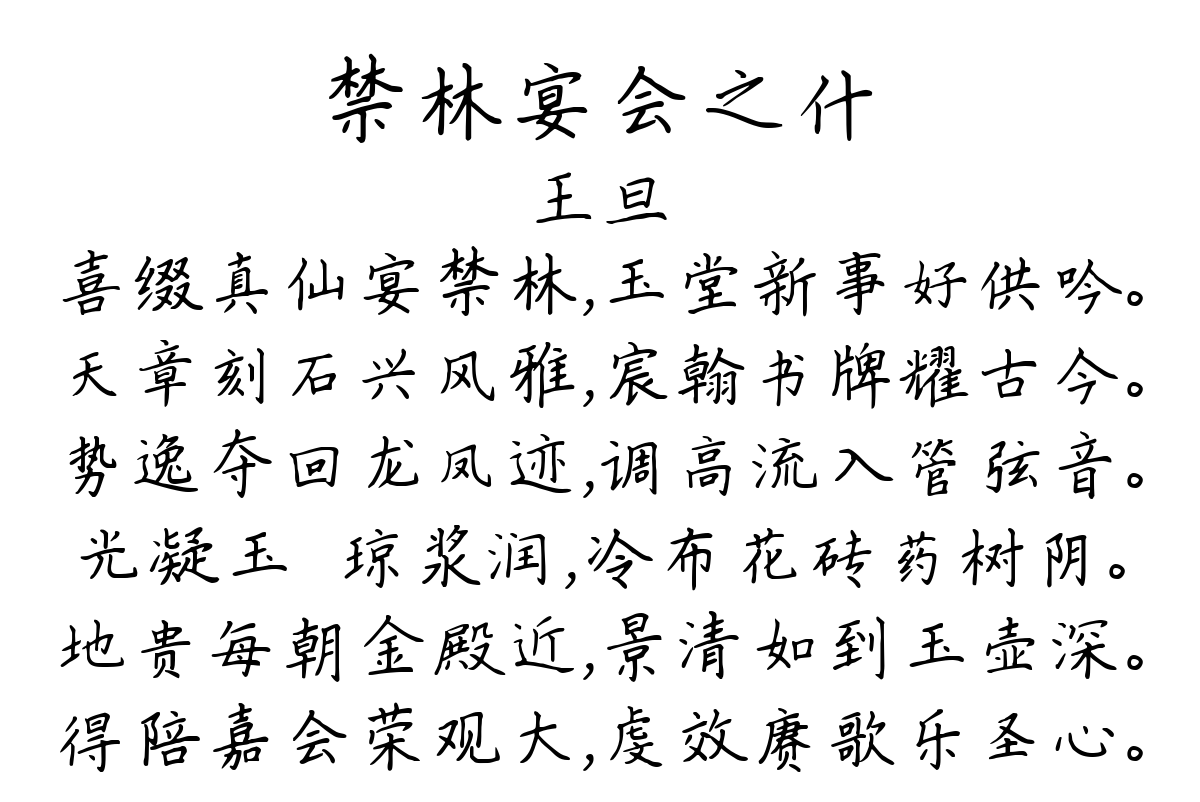 禁林宴会之什
王旦
喜缀真仙宴禁林,玉堂新事好供吟。
天章刻石兴风雅,宸翰书牌耀古今。
势逸夺回龙凤迹,调高流入管弦音。
光凝玉 琼浆润,冷布花砖药树阴。
地贵每朝金殿近,景清如到玉壶深。
得陪嘉会荣观大,虔效赓歌乐圣心。